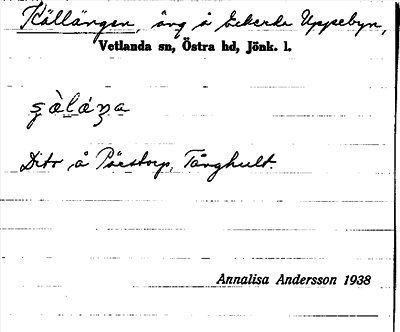 Källängen, äng å Ekerda Uppebyn,
Vetlanda sn, Östra hd, Jönk. l.
Dito å Pärstorp, Tånghult.
Annalisa Andersson 1938